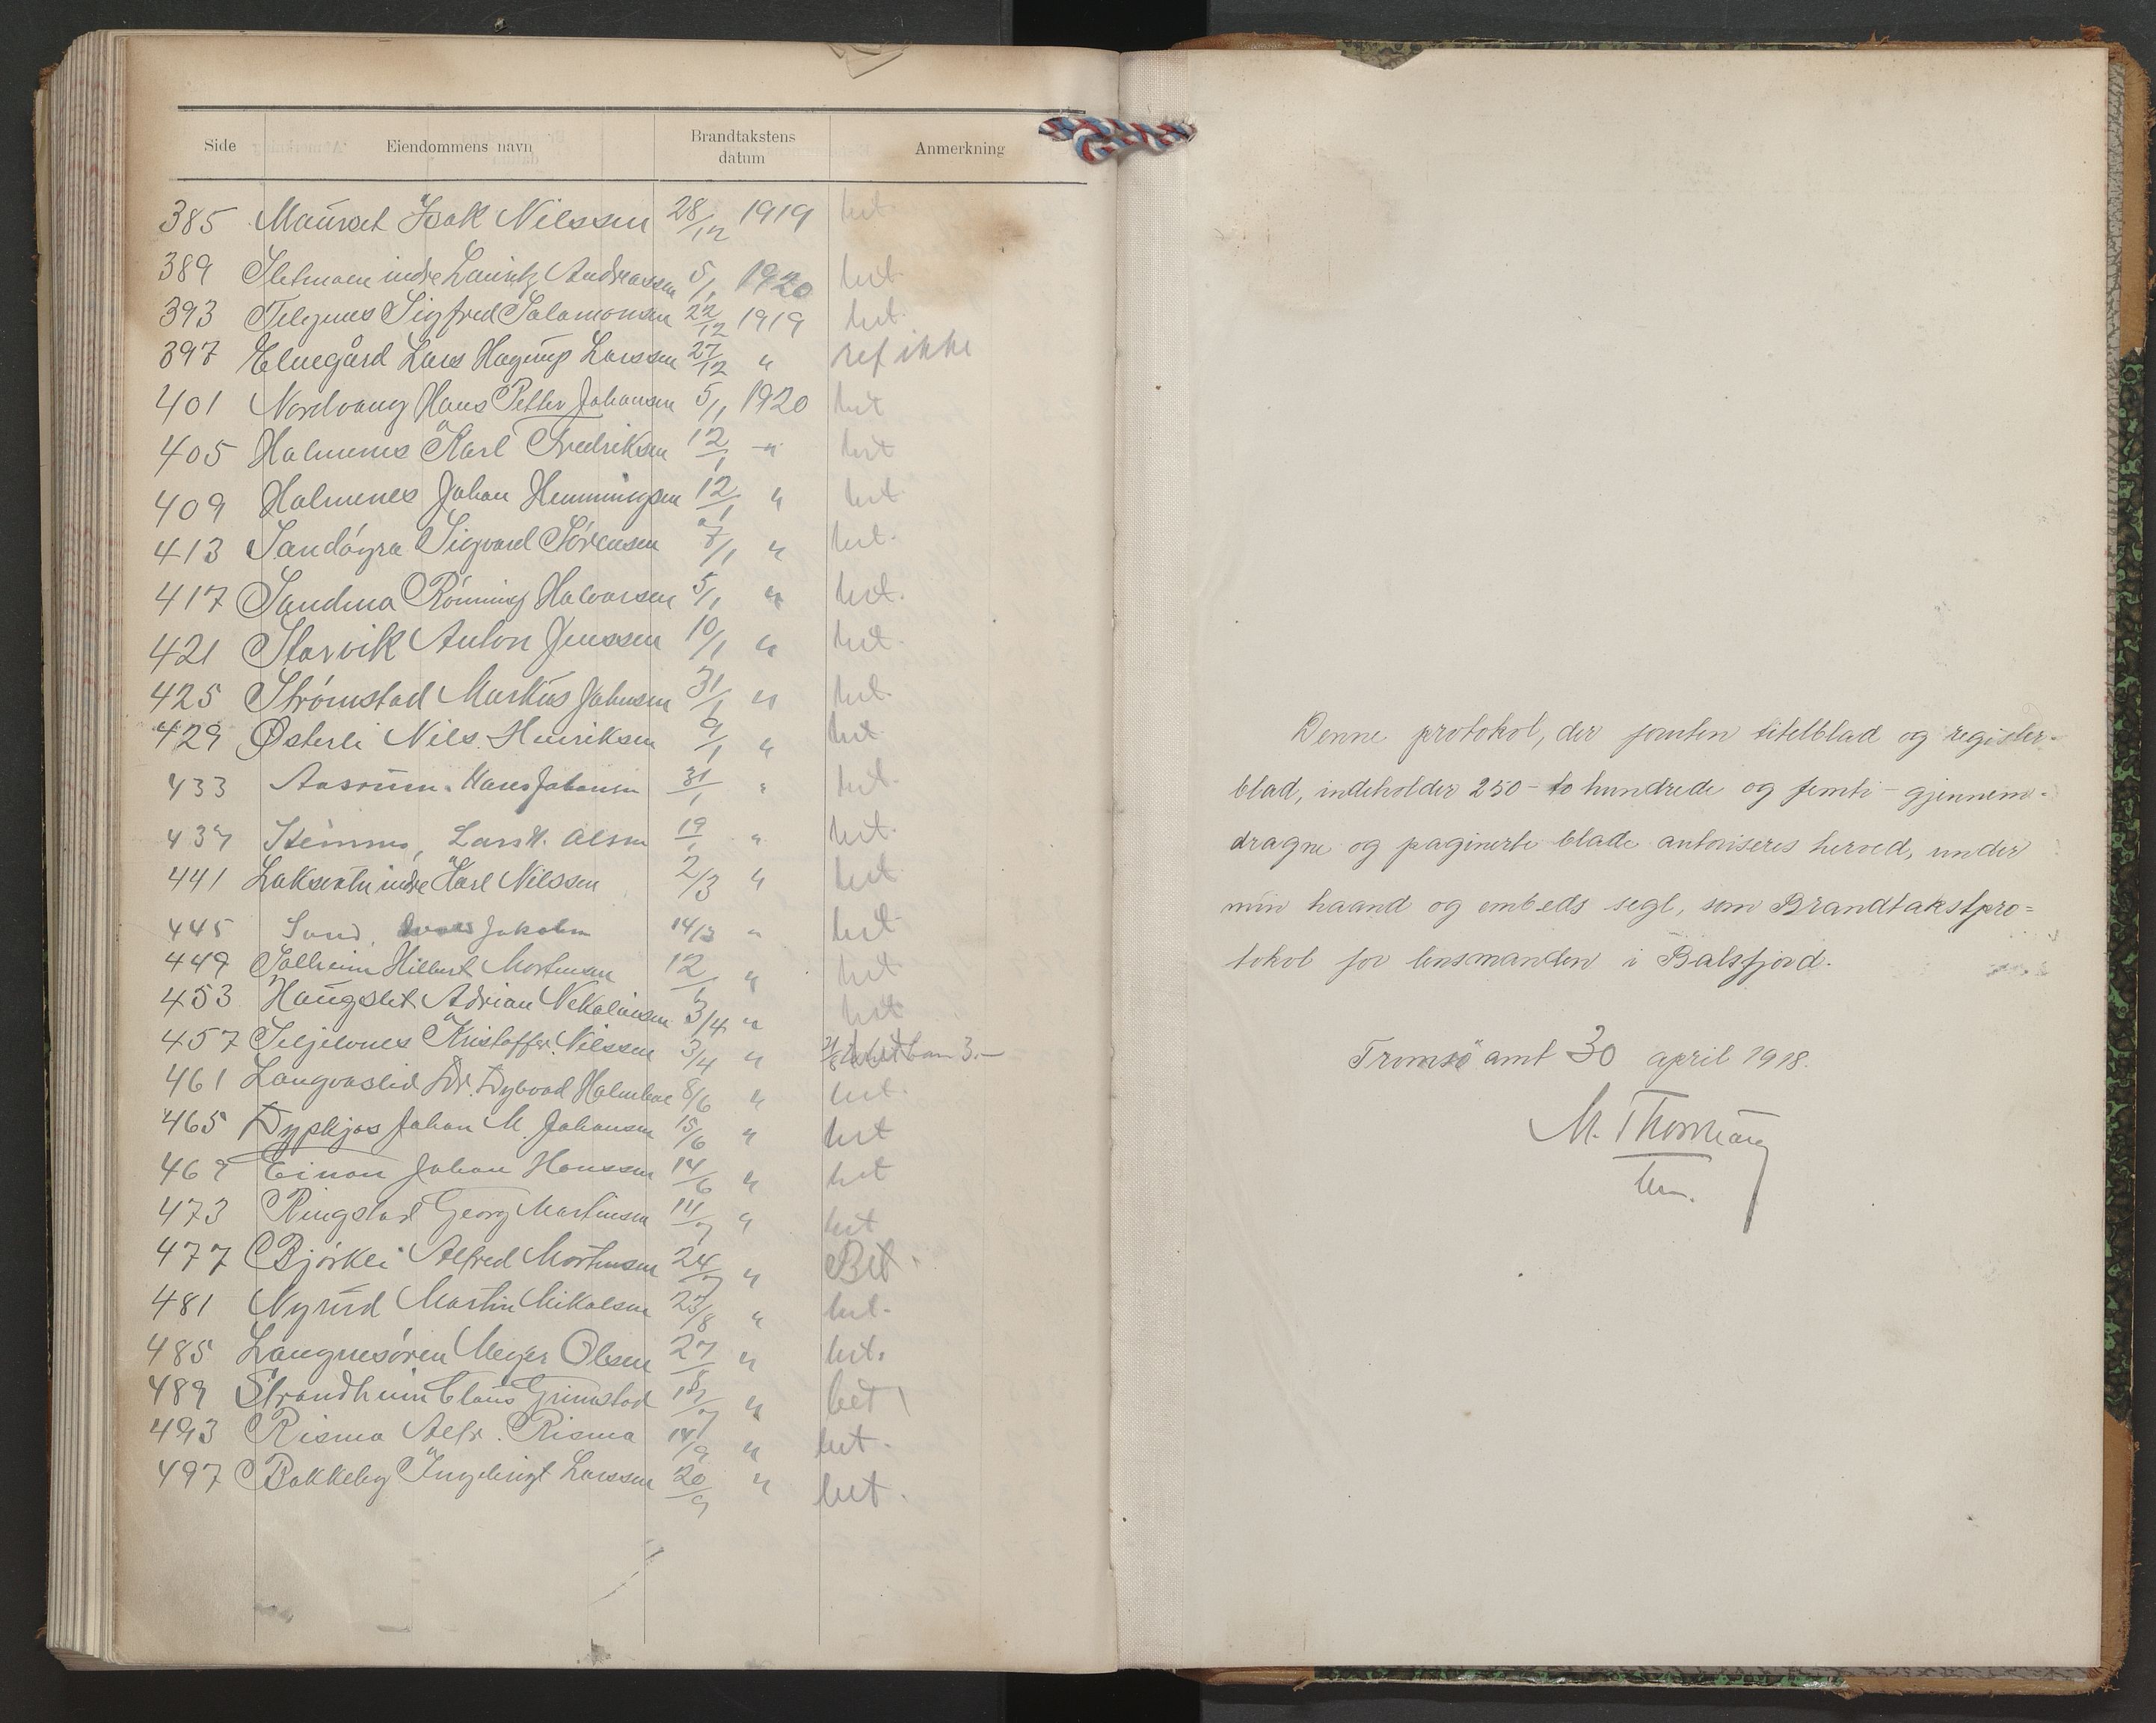 Side Eiendommens navn Brandtakstens datum Anmerkning
385 Maursæt Isak Nilssen 28/12 1919 bet
389 Sletmoen indre Lauritz Andreassen 5/1 1920 bet
393 Sigfred Salamonsen 22/12 1919 bet.
397 Elvegård Lars Hagerup Larssen 27/12 " ref ikke
401 Nordvang Hans Petter Johansen 5/1 1920 bet
405 Holmenes Karl Fredriksen 12/1 " bet
409 Holmenes Johan Hemmingsen 12/1 " bet
413 Sandøyra Sigvard Sørensen 7/1 " bet.
417 Sandmo Rønning Halvorsen 5/1 " bet.
421 Storvik Anton Jenssen 10/1 " bet.
425 Strømstad Markus Johnsen 31/1 " bet.
429 Østerli Nils Henriksen 9/1 " bet
433 Hans Johansen 31/1 " bet.
437 Lars H. Olsen 19/1 " bet.
441 Laksvatn indre Karl Nilssen 2/3 " bet
445 Sand, Jakobsen 14/3 " bet
449 Solheim Hilbert Mortensen 12/1 " bet
453 Haugslet Adrian Nekolaisen 3/4 " bet
457 Seljelvnes Kristoffer Nilssen 3/4 " 3.—
461 Langvaslid Dr. Dybvad Holmboe 8/6 " bet.
465 Dypkjos Johan M. Johansen 15/6 " bet
469 Einan Johan Hanssen 14/6 " bet
473 Ringstad Georg Martinsen 14/7 " bet
477 Bjørkli Alfred Mortensen 24/7 " Bet.
481 Nyrud Martin Mikalsen 23/8 " bet.
485 Langnesøren Meyer Olsen 27/8 " bet.
489 Strandheim Claus Grimstad 17/7 " bet
493 Risma Alfr. Risma 14/9 " bet.
497 Bakkeby Ingebrigt Larssen 20/9 " bet.
Denne protokol, der foruten titelblad og register-
blad, indeholder 250 - to hundrede og femti - gjennem-
dragne og paginerte blade autoriseres herved, under
min haand og embeds segl, som Brandtakstpro=
tokol for lensmanden i Balsfjord.
Tromsø amt 30 april 1918.
M. Thornæng